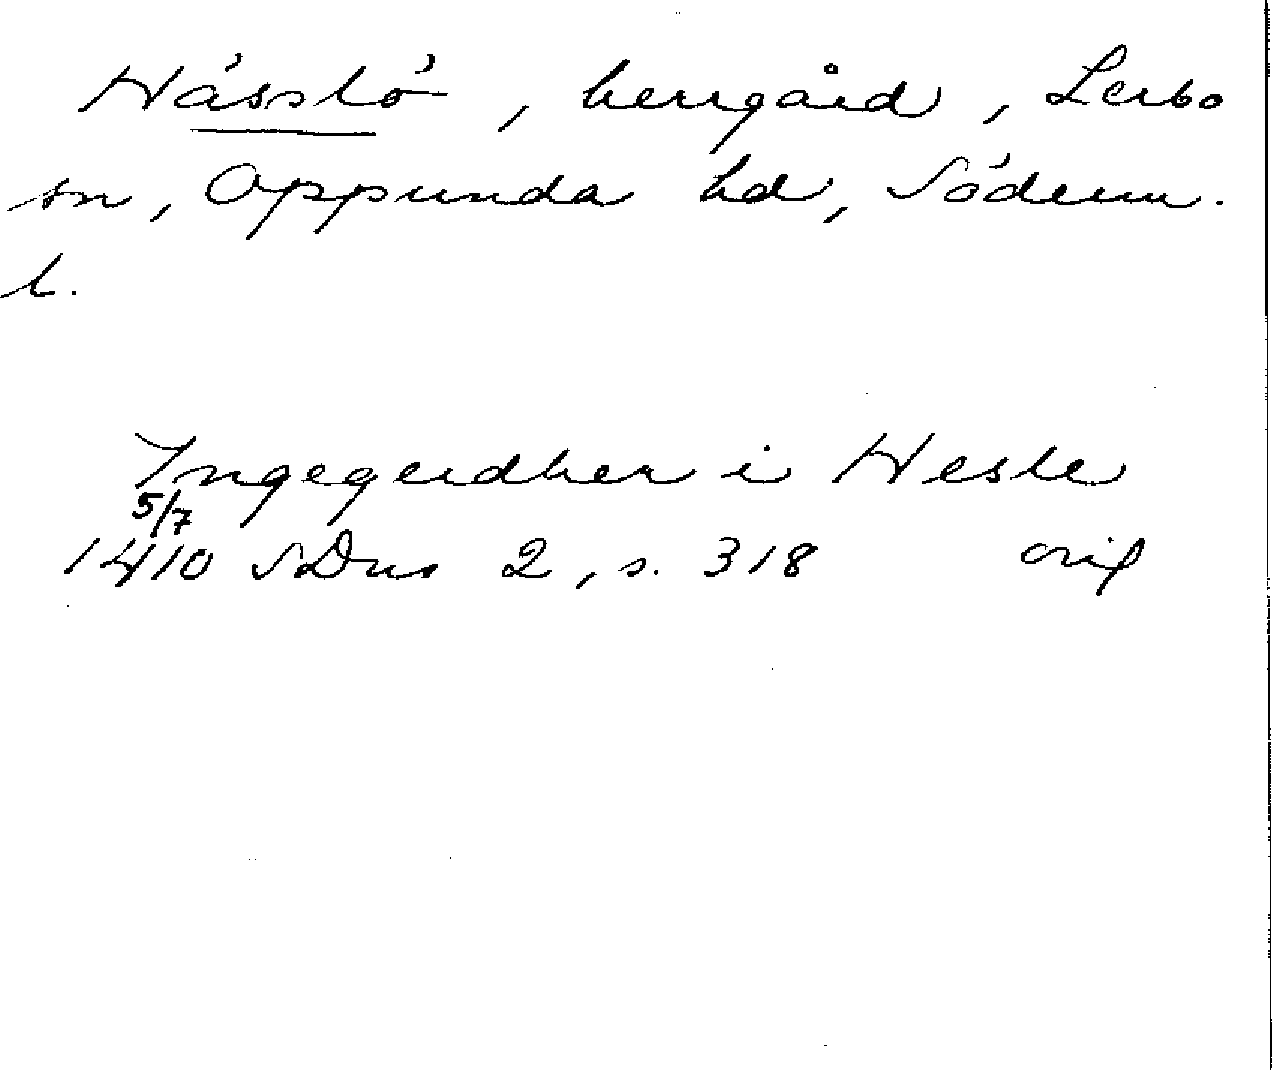 Hässlö, herrgård, Lerbo
sn, Oppunda hd, Söderm.
l.
Ingegerdher i Hesle
5/7
1410 SDns 2, s. 318 orig